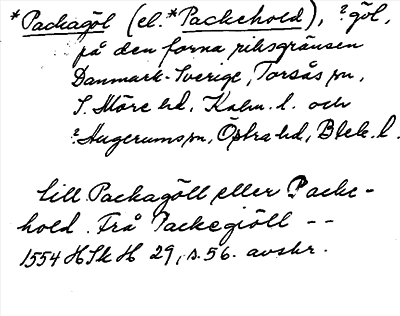 *Packagöl (el. *Packehold), ? göl,
på den forna riksgränsen
Danmark-Sverige, Torsås sn,
S. Möre hd, Kalm. l. och
? Hugerums sn, Östra hd, Blek. l.
till Packagöll eller Packe-
hold. Frå Packegiöll --
1554 HSH 29, s. 56. avskr.